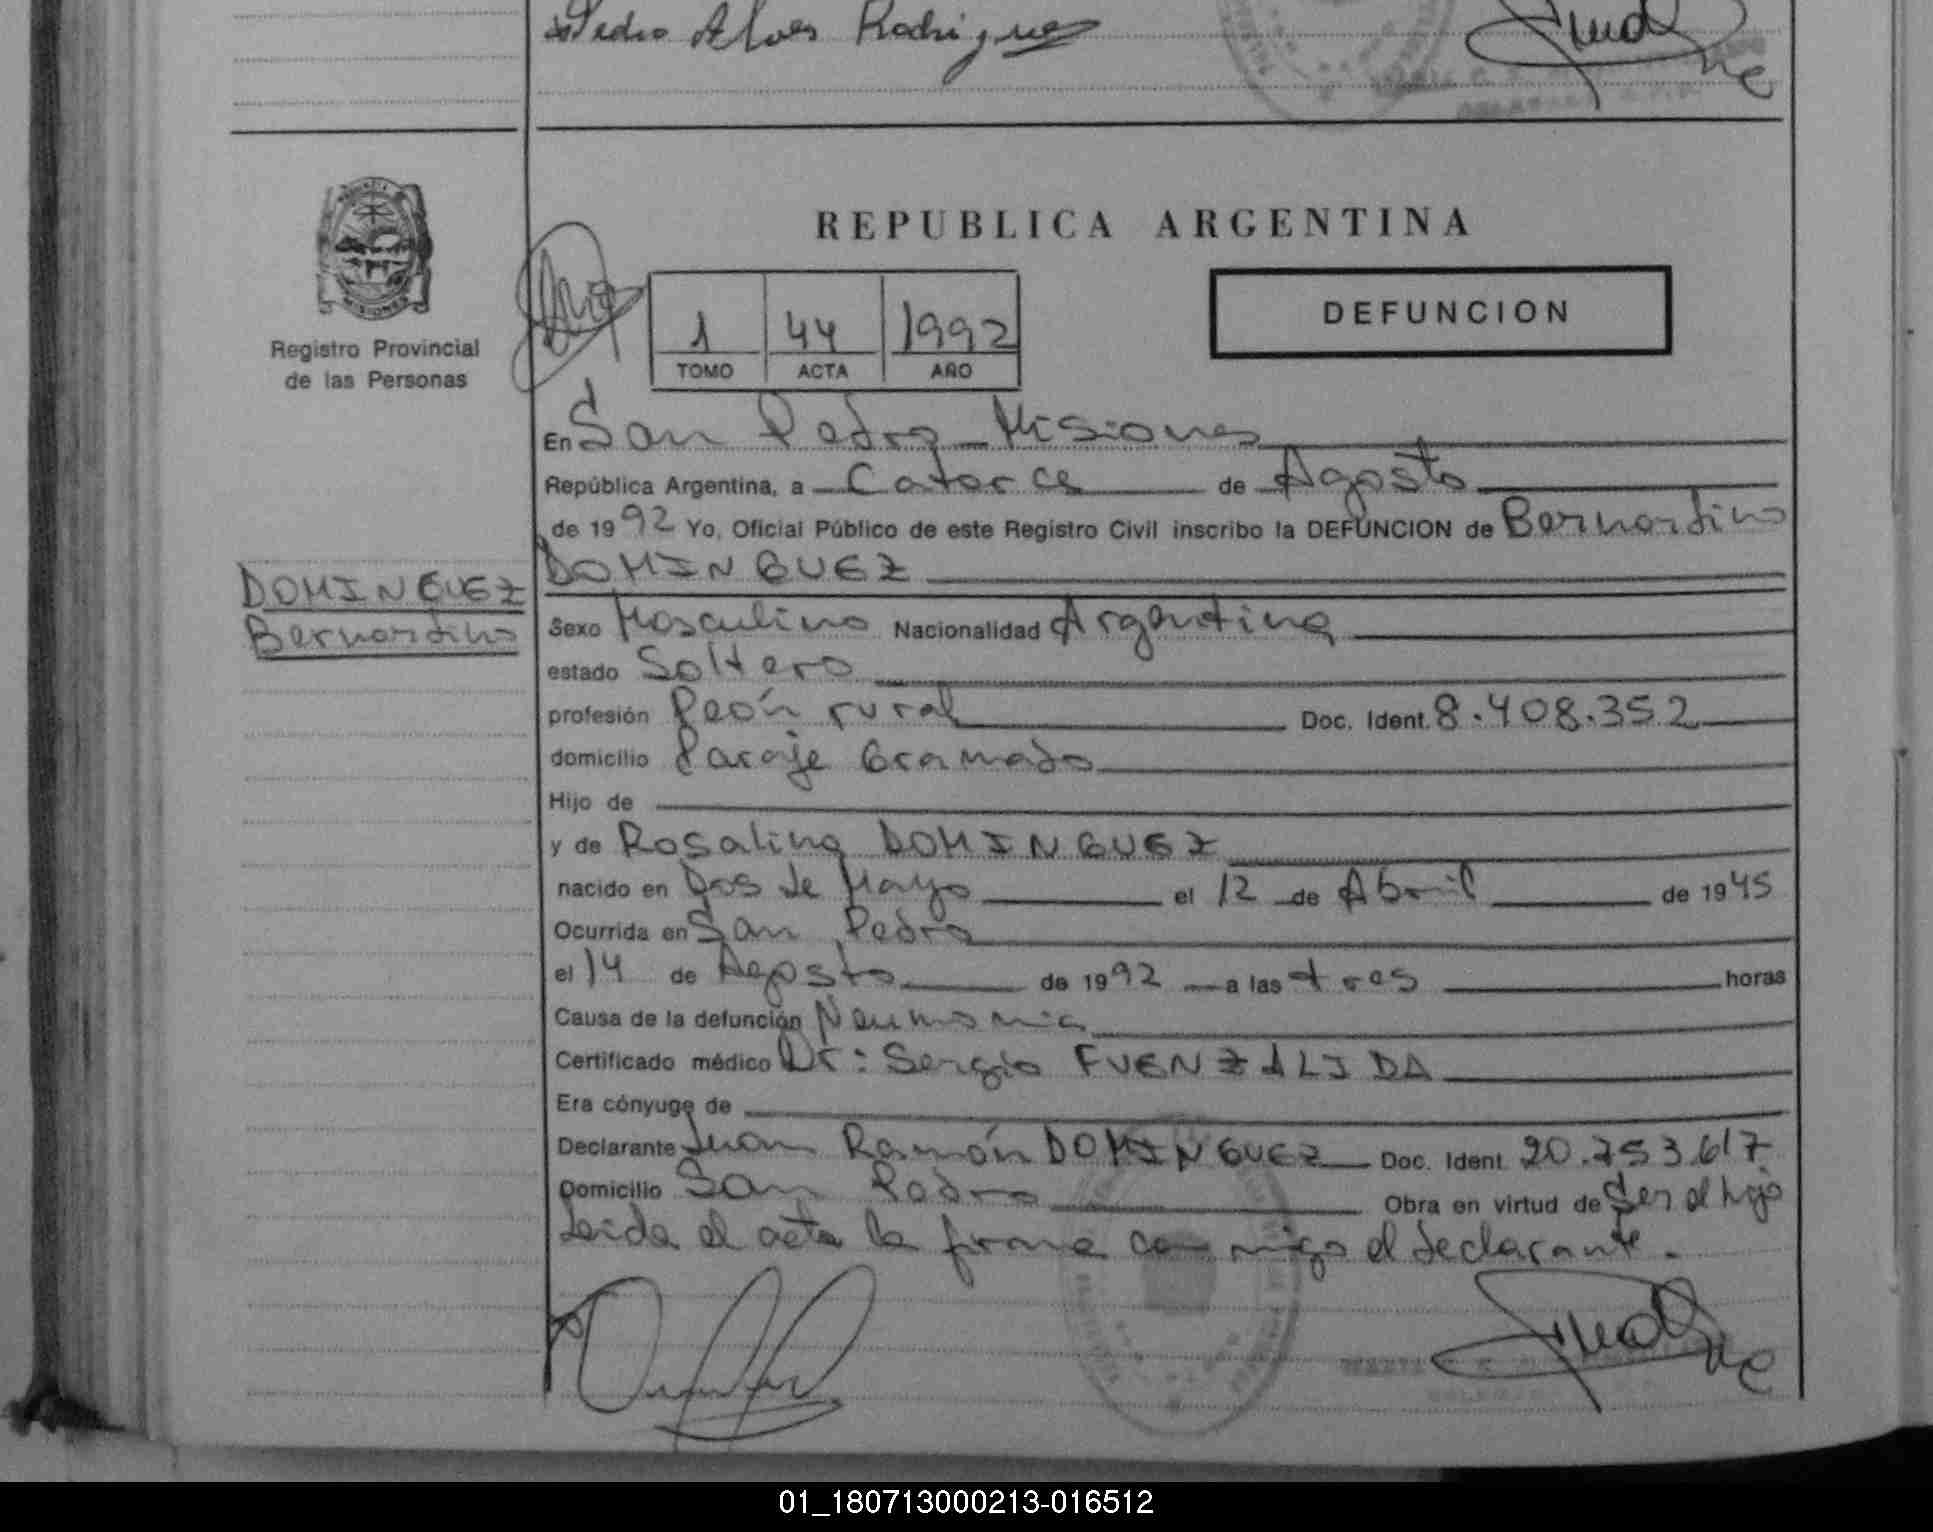 Pedro Alves Rodriguez
Registro Provincial
de las Personas
REPUBLICA ARGENTINA
1 44 1992
TOMO ACTA AÑO
DEFUNCION
En San Pedro Misiones
República Argentina, a Catorce de Agosto
de 1992 Yo, Oficial Público de este Registro Civil inscribo la DEFUNCION de Bernardino
DOMINGUEZ
DOMINGUEZ
Bernardino
Sexo Masculino Nacionalidad Argentina
estado Soltero
profesión Peón rural Doc. Ident. 8.408.352
domicilio Paraje Gramado
Hijo de
y de Rosalina DOMINGUEZ
nacido en Dos de Mayo el 12 de Abril de 1945
Ocurrida en San Pedro
el 14 de Agosto de 1992 a las tres horas
Causa de la defunción Neumonia
Certificado médico Dr: Sergio FUENZALIDA
Era cónyuge de
Declarante Juan Ramón DOMINGUEZ Doc. Ident. 20.753.617
Domicilio San Pedro Obra en virtud de Ser el hijo
Leida el acta la firma conmigo el declarante.
01_180713000213-016512